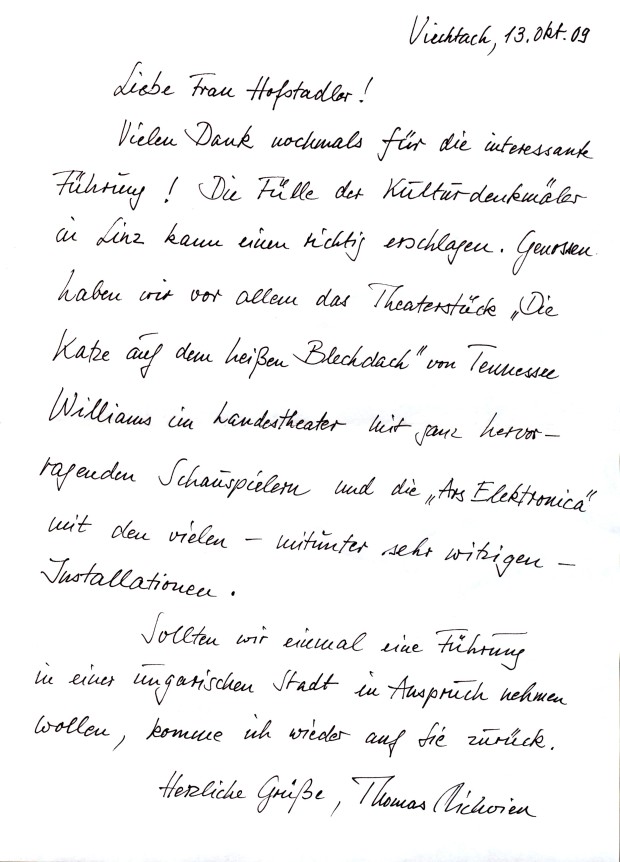 Viechtach, 13. Okt. 09
Liebe Frau Hofstadler!
Vielen Dank nochmals für die interessante
Führung! Die Fülle der Kulturdenkmäler
in Linz kann einen richtig erschlagen. Genossen
haben wir vor allem das Theaterstück „Die
Katze auf dem heißen Blechdach" von Tennessee
Williams im Landestheater mit ganz hervor-
ragenden Schauspielern und die „Ars Elektronica"
mit den vielen – mitunter sehr witzigen –
Installationen.
Sollten wir einmal eine Führung
in einer ungarischen Stadt in Anspruch nehmen
wollen, komme ich wieder auf Sie zurück.
Herzliche Grüße, Thomas